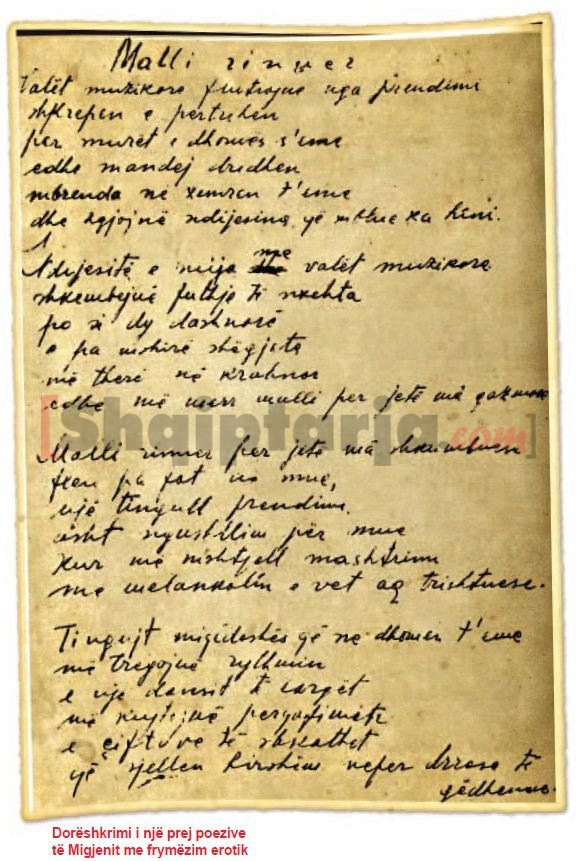 Malli rinuer
Valët muzikore fluturojnë nga prendimi
shkrepen e perthehen
per muret e dhomës s'eme
edhe mandej dridhen
mbrenda në xemren t'eme
dhe zgjojnë ndijesina që mblue ka hini.
Ndijesitë e mija me valët muzikore
shkembejnë puthje të nxehta
po si dy dashnorë
e pa mshirë shëgjeta
më therë në krahnor
edhe më merr malli per jetë ma gazmore
[Shqiptarja.com]
Malli rinuer per jetë ma
flen pa fat në mue,
një tingull prendimi
asht ngushllim për mue
kur më mshtjell mashtrimi
me melankolin e vet aq trishtuese.
Tingujt që në dhomen t'eme
më tregojnë rythmin
e një dansit të
më kujtojnë
e çiftuve të shkathët
që sjellen hirshim neper drrasa të
gëdhenuna.
Dorëshkrimi i një prej poezive
të Migjenit me frymëzim erotik